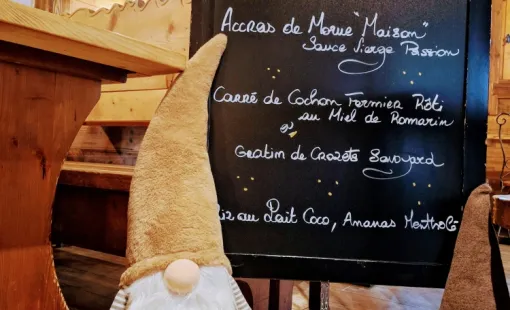 Accras de Morue "Maison"
Sauce Vierge Passion
Carré de Cochon Fermier Rôti
au Miel de Romarin
Gratin de Crozets Savoyard
Riz au Lait Coco, Ananas